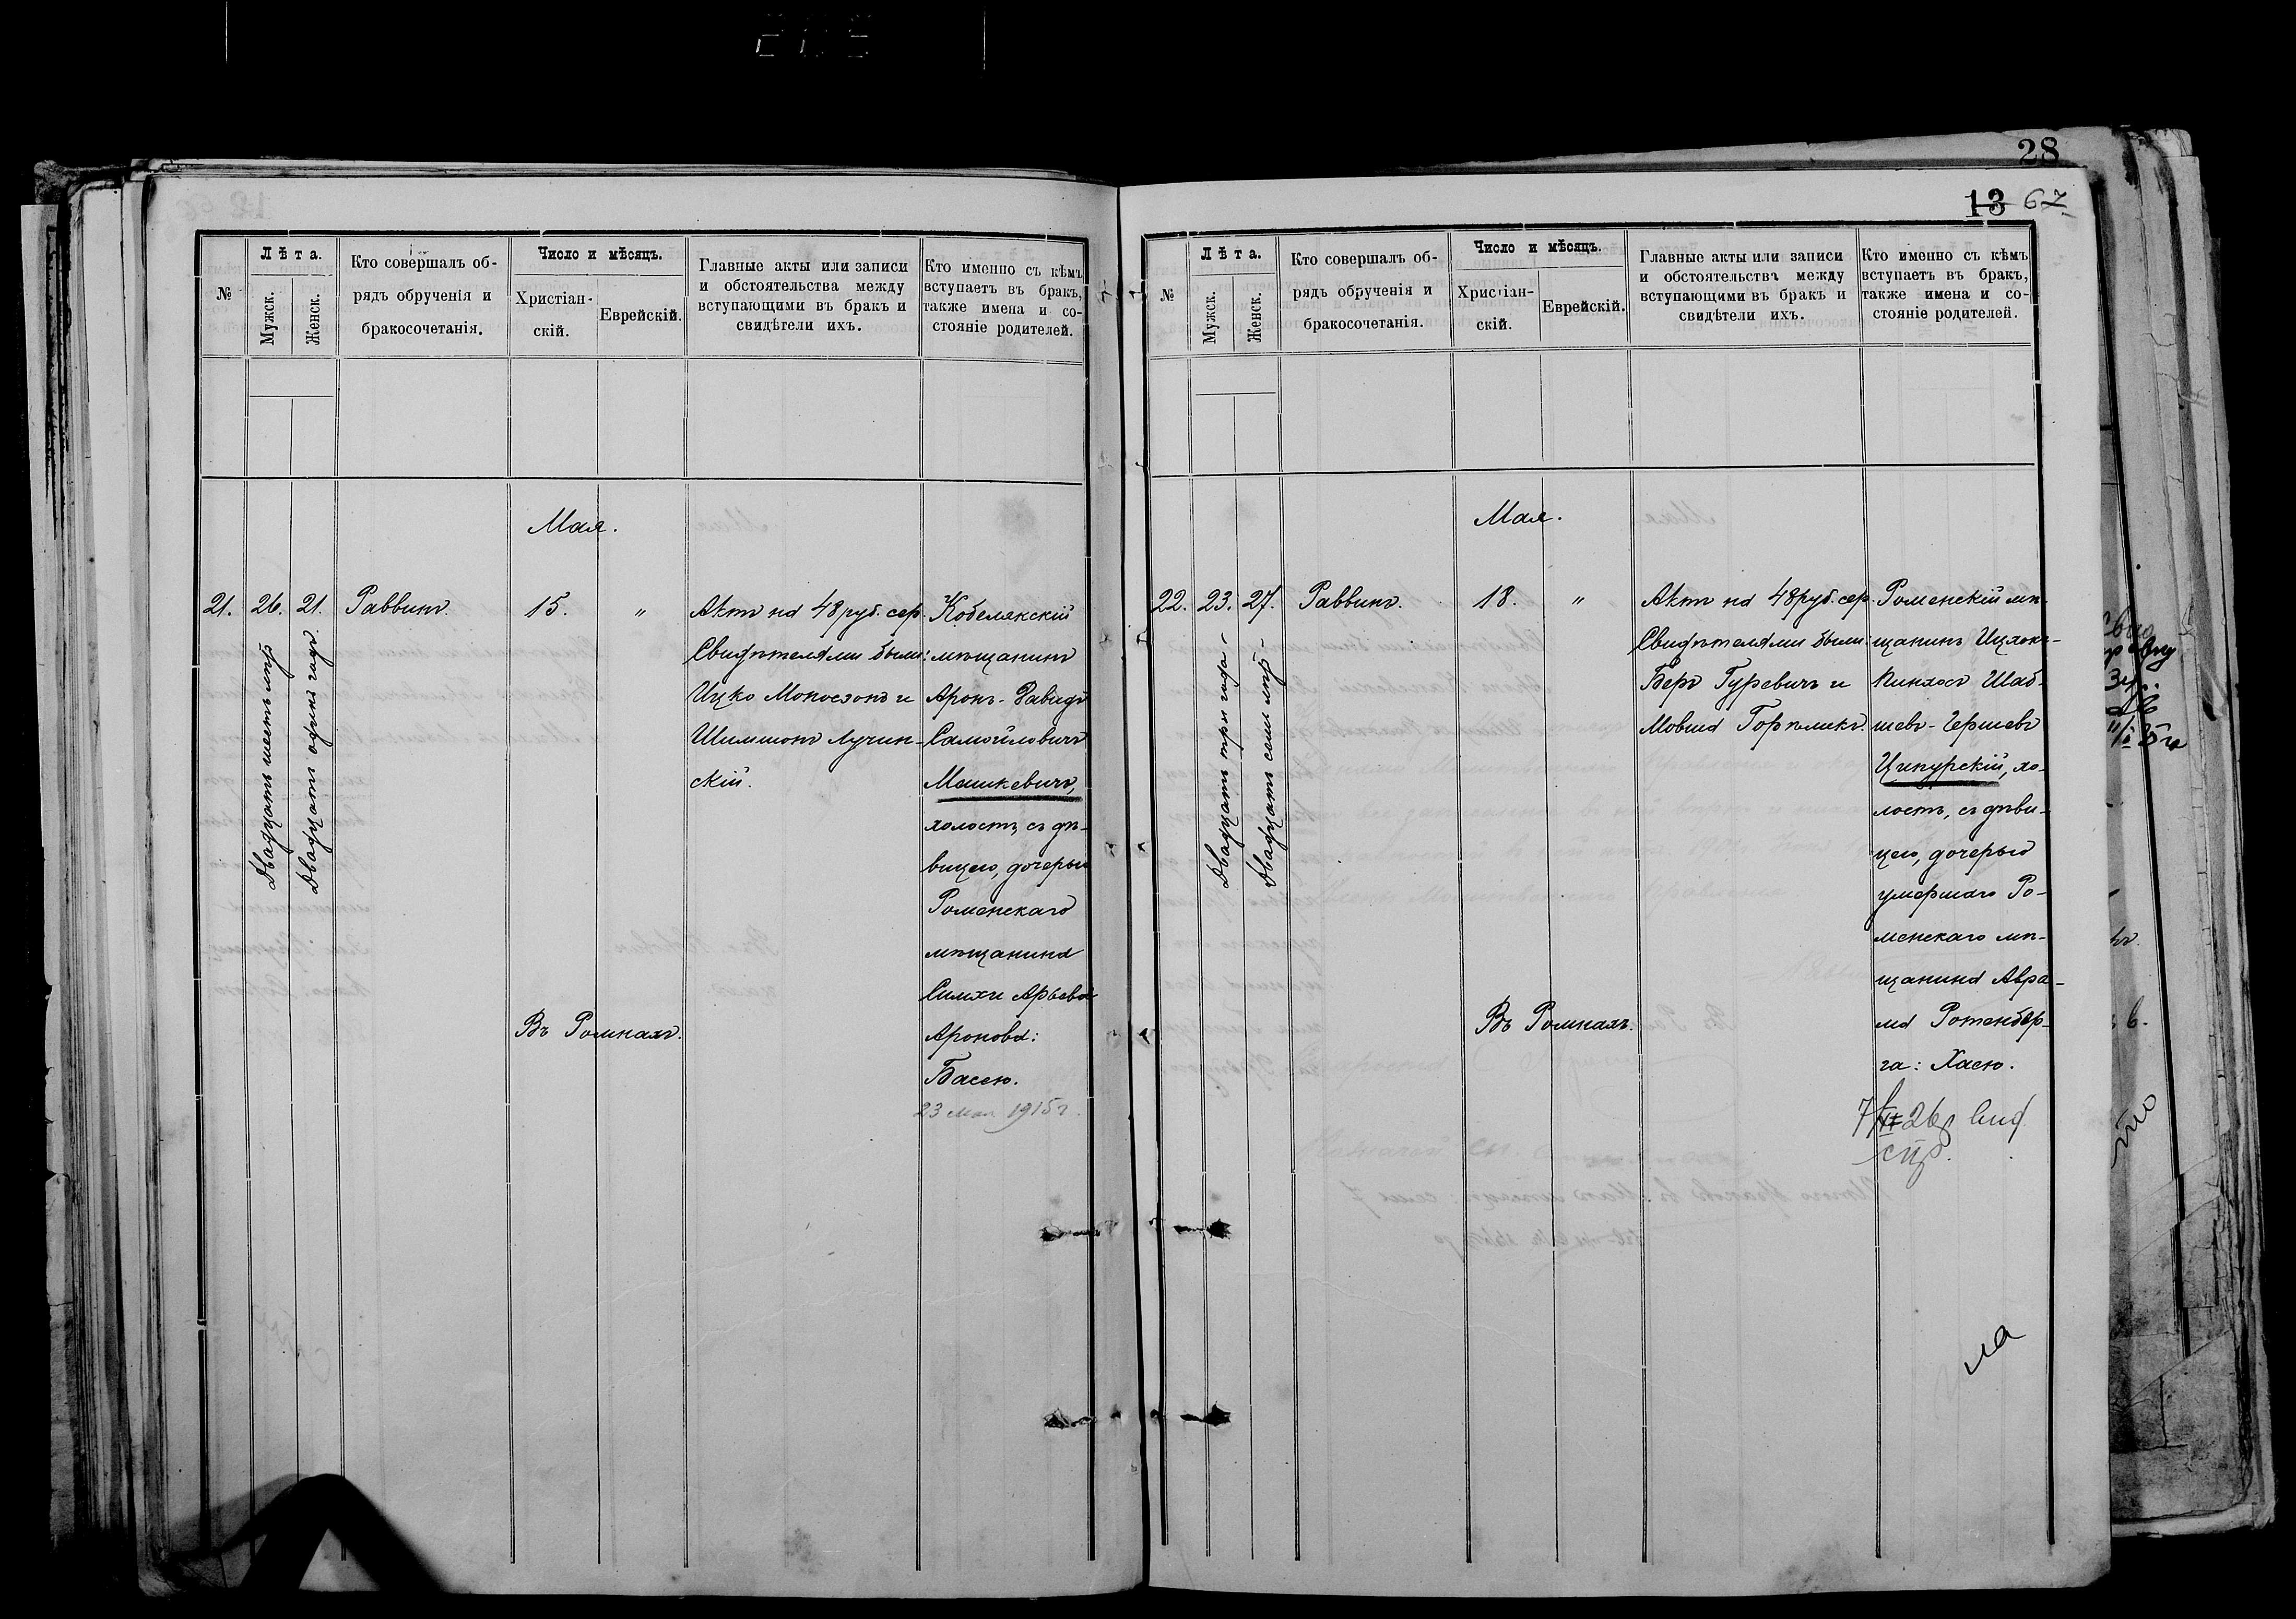 28
13 67
№
Лѣта.
Мужск.
Женск.
Кто совершалъ об-
рядъ обрученія и
бракосочетанія.
Число и мѣсяцъ.
Христіан-
скій.
Еврейскій.
Главные акты или записи
и обстоятельства между
вступающими въ бракъ и
свидѣтели ихъ.
Кто именно съ кѣмъ
вступаетъ въ бракъ,
также имена и со-
стояніе родителей.
Мая.
21.
26.
Двадцать шесть лѣтъ
21.
Двадцать одинъ годъ.
Раввинъ.
15.
"
Въ Ромнахъ.
Актъ на 48 руб. сер.
Свидѣтелями были:
Ицко Моносзонъ и
Шимшонъ Лучин-
скій.
Кобелякскій
мѣщанинъ
Аронъ-Давидъ
Самойловичъ
Машкевичъ,
холостъ, съ дѣ-
вицею, дочерью
Роменскаго
мѣщанина
Симхи Арьева
Аронова:
Басею.
23 мая 1915 г.
№
Лѣта.
Мужск.
Женск.
Кто совершалъ об-
рядъ обрученія и
бракосочетанія.
Число и мѣсяцъ.
Христіан-
скій.
Еврейскій.
Главные акты или записи
и обстоятельства между
вступающими въ бракъ и
свидѣтели ихъ.
Кто именно съ кѣмъ
вступаетъ въ бракъ,
также имена и со-
стояніе родителей.
Мая.
22.
23.
Двадцать три года
27.
Двадцать семь лѣтъ
Раввинъ.
18.
"
Въ Ромнахъ.
Актъ на 48 руб. сер.
Свидѣтелями были:
Беръ Гуревичъ и
Мовша
Роменскій мѣ-
щанинъ Ицхокъ-
Пинхосъ Шаб-
шевъ-Гершевъ
Ципурскій, хо-
лостъ, съ дѣви-
цею, дочерью
умершаго Ро-
менскаго мѣ-
щанина Авра-
ма Ротенбер-
га: Хасею.